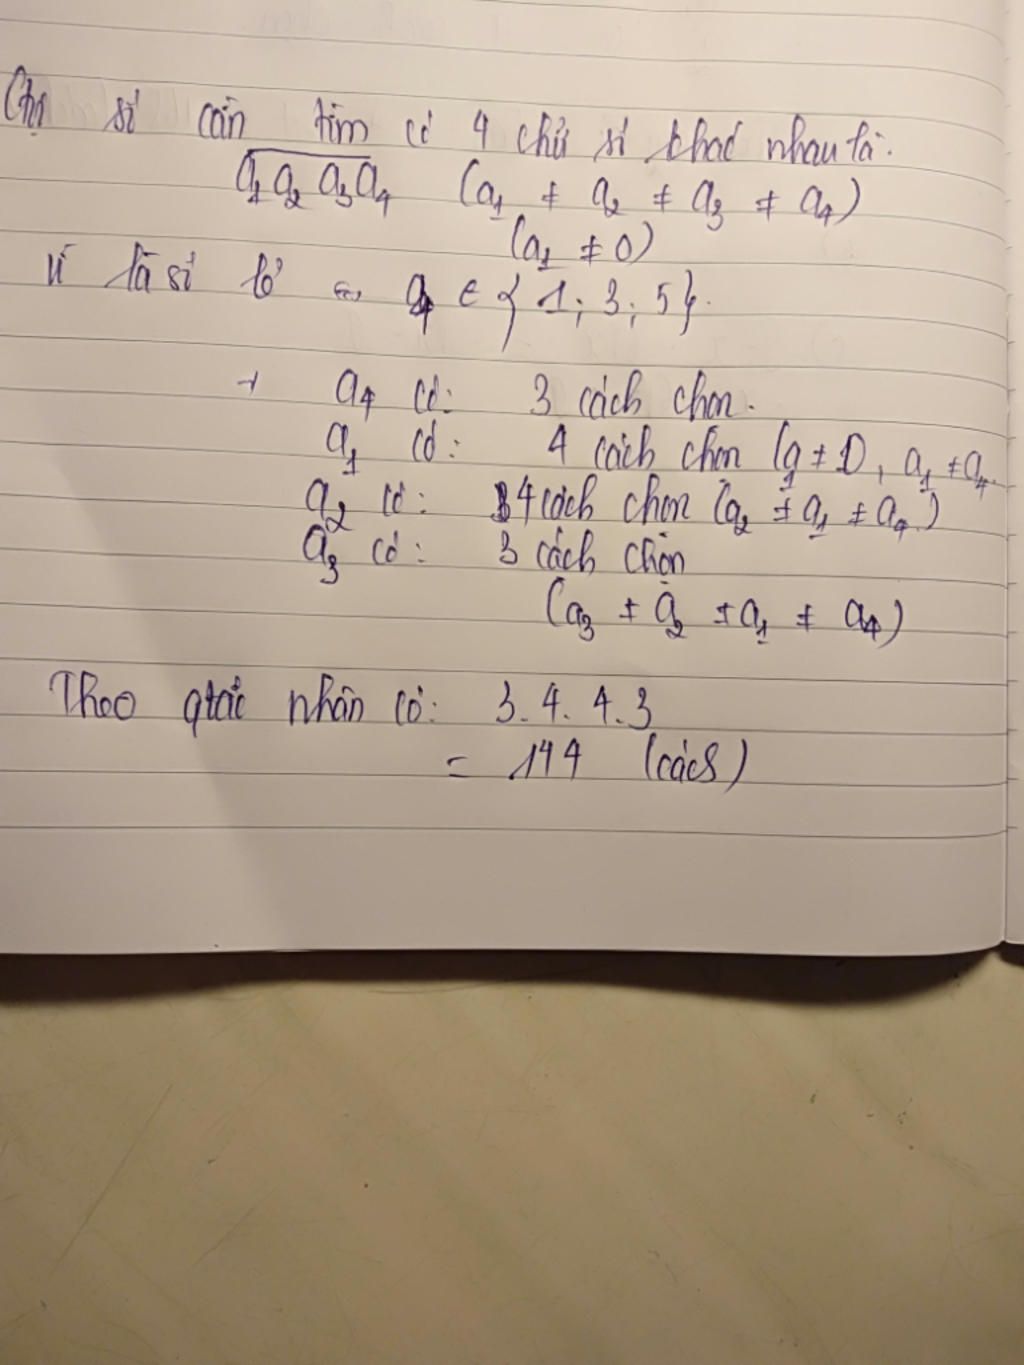 Gọi số cần tìm có 4 chữ số khác nhau là:
a₁a₂a₃a₄ (a₁ ≠ a₂ ≠ a₃ ≠ a₄)
(a₁ ≠ 0)
Vì là số lẻ => a₄ ∈ {1; 3; 5}.
+ a₄ có: 3 cách chọn.
a₁ có: 4 cách chọn (a₁ ≠ 0, a₁ ≠ a₄
a₂ có: 4 cách chọn (a₂ ≠ a₁ ≠ a₄)
a₃ có: 3 cách chọn
(a₃ ≠ a₂ ≠ a₁ ≠ a₄)
Theo qtắc nhân có: 3.4.4.3
= 144 (cách)